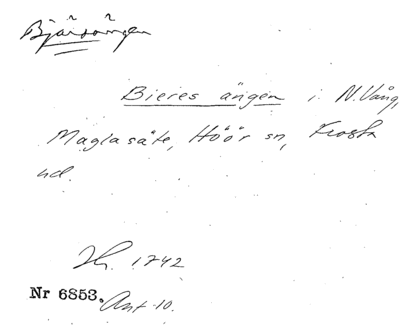 Bjärsängen
Bieres ängen i N. Vång,
Maglasäte, Höör sn, Frosta
hd.
Jb. 1742
Nr 6853. Ant. 10.